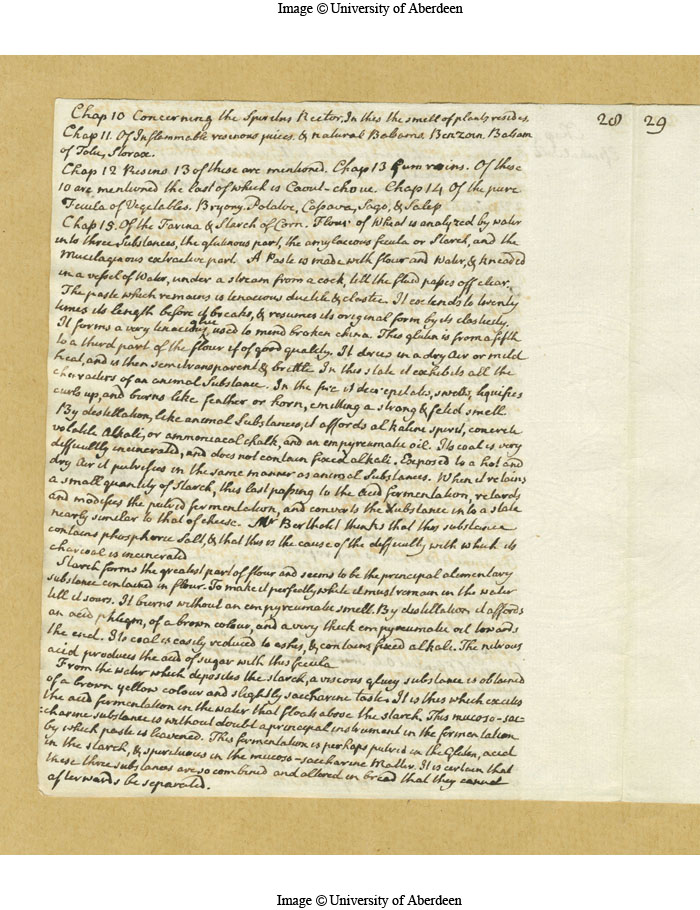 Image © University of Aberdeen
28 29
Chap 10 Concerning the Spiritus Rector. In this the smell of plants resides.
Chap 11. Of Inflammable resinous juices. & natural Balsams. Benzoin. Balsam
of Tolu, Storax.
Chap 12 Resins. 13 of these are mentioned. Chap 13 Gum resins. Of these
10 are mentioned the last of which is Caout-choue. Chap 14 Of the pure
Fecula of Vegetables. Bryony. Potatoe, Cassava, Sago, & Salep
Chap 15. Of the Farina & Starch of Corn. Flour of Wheat is analyzed by water
into three Substances, the glutinous part, the amylaceous fecula or Starch, and the
Mucilaginous extractive part. A Paste is made with flour and Water, & kneaded
in a vessel of Water, under a stream from a cock, till the fluid passes off clear.
The paste which remains is tenacious ductile & elastic. It extends to twenty
times its length before it breaks, & resumes its original form by its elasticity.
It forms a very tenacious glue used to mend broken china. This gluten is from a fifth
to a third part of the flour if of good quality. It dries in a dry Air or mild
heat, and is then semitransparent & brittle. In this state it exhibits all the
characters of an animal Substance. In the fire it decrepitates, swells, liquifies
curls up, and burns like feather or horn, emitting a strong & fetid smell
By destillation, like animal Substances, it affords alkaline spirit, concrete
volatile Alkali, or ammoniacal chalk, and an empyreumatic oil. Its coal is very
difficultly incinerated, and does not contain fixed alkali. Exposed to a hot and
dry Air it putrifies in the same manner as animal Substances. When it retains
a small quantity of Starch, this last passing to the Acid fermentation, retards
and modifies the putrid fermentation, and converts the Substance into a state
nearly similar to that of cheese. Mr Berthollet thinks that this substance
contains phosphoric Salt, & that this is the cause of the difficulty with which its
charcoal is incinerated
Starch forms the greatest part of flour and seems to be the principal alimentary
substance contained in flour. To make it perfectly white it must remain in the water
till it sours. It burns without an empyreumatic smell. By destillation it affords
an acid phlegm, of a brown colour, and a very thick empyreumatic oil towards
the end. Its coal is easily reduced to ashes, & contains fixed alkali. The nitrous
acid produces the acid of sugar with this fecula
From the water which deposites the starch, a viscous gluey substance is obtained
of a brown yellow colour and slightly saccharine taste. It is this which excites
the acid fermentation in the water that floats above the starch. This mucoso-sac-
:charine substance is without doubt a principal instrument in the fermentation
by which paste is leavened. This fermentation is perhaps putrid in the Gluten, acid
in the starch, & spirituous in the mucoso-saccharine Matter. It is certain that
these three substances are so combined and altered in bread that they cannot
afterwards be separated.
Image © University of Aberdeen